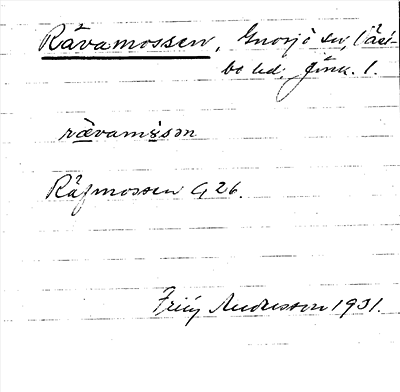 Rävamossen, Gnosjö sn, Väst-
bo hd, Jönk. l.
rävamåsən
Räfmossen G 26.
Frity Andersson 1931.